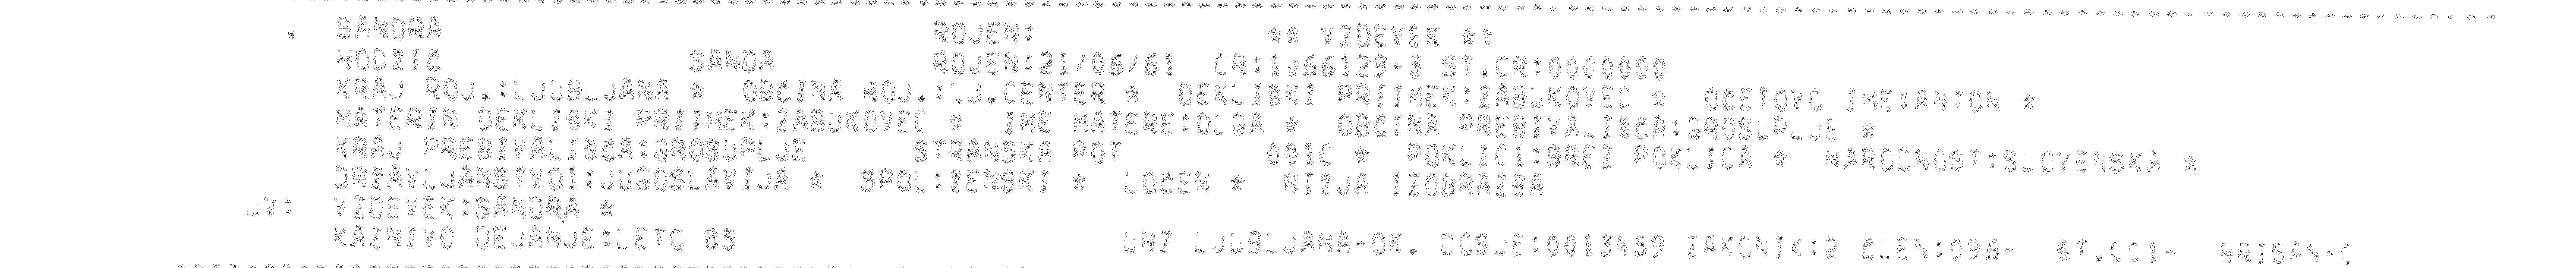 SANDRA ROJEN: ** VZDEVEK **
HODZIC SANDA ROJEN:21/06/61 CR:1066129-3 ST.CR:0000000
KRAJ ROJ.:LJUBLJANA * OBCINA ROJ.:LJ.CENTER * DEKLISKI PRIIMEK:ZABUKOVEC * OCETOVO IME:ANTON *
MATERIN DEKLISKI PRIIMEK:ZABUKOVEC * IME MATERE:OLGA * OBCINA PREBIVALISCA:GROSUPLJE *
KRAJ PREBIVALISCA:GROSUPLJE STRANSKA POT 001C * POKLIC1:BREZ POKLICA * NARODNOST:SLOVENSKA *
DRZAVLJANSTVO1:JUGOSLAVIJA * SPOL:ZENSKI * LOCEN * NIZJA IZOBRAZBA
JV: VZDEVEK:SANDRA *
KAZNIVO DEJANJE:LETO 85 UNZ LJUBLJANA-OK. DOSJE:0013469 ZAKONIK:2 CLEN:096- ST.CCI-